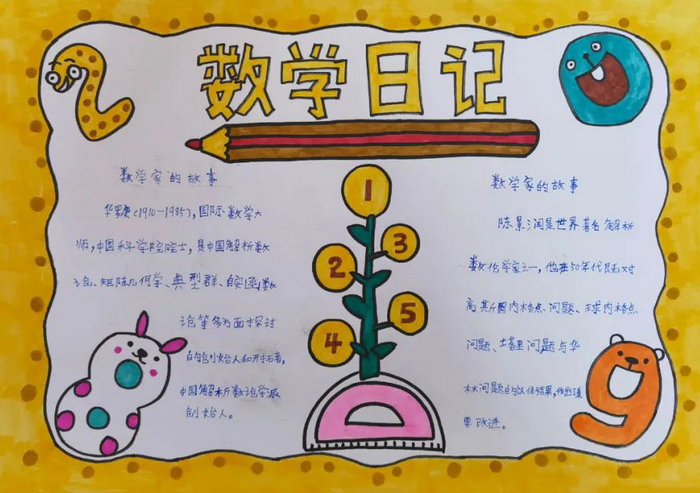 数学日记
数学家的故事
华罗庚(1910—1985),国际数学大
师,中国科学院院士,是中国解析数
论、矩阵几何学、典型群、自守函数
论等多方面探讨
的创始人和开拓者,
中国解析数论学派
创始人。
1
2
3
4
5
数学家的故事
陈景润是世界著名解析
数论学家之一,他在50年代民对
高斯圆内格点问题、球内格点
问题、塔里问题与华
问题的以往结果,作出
要改进。